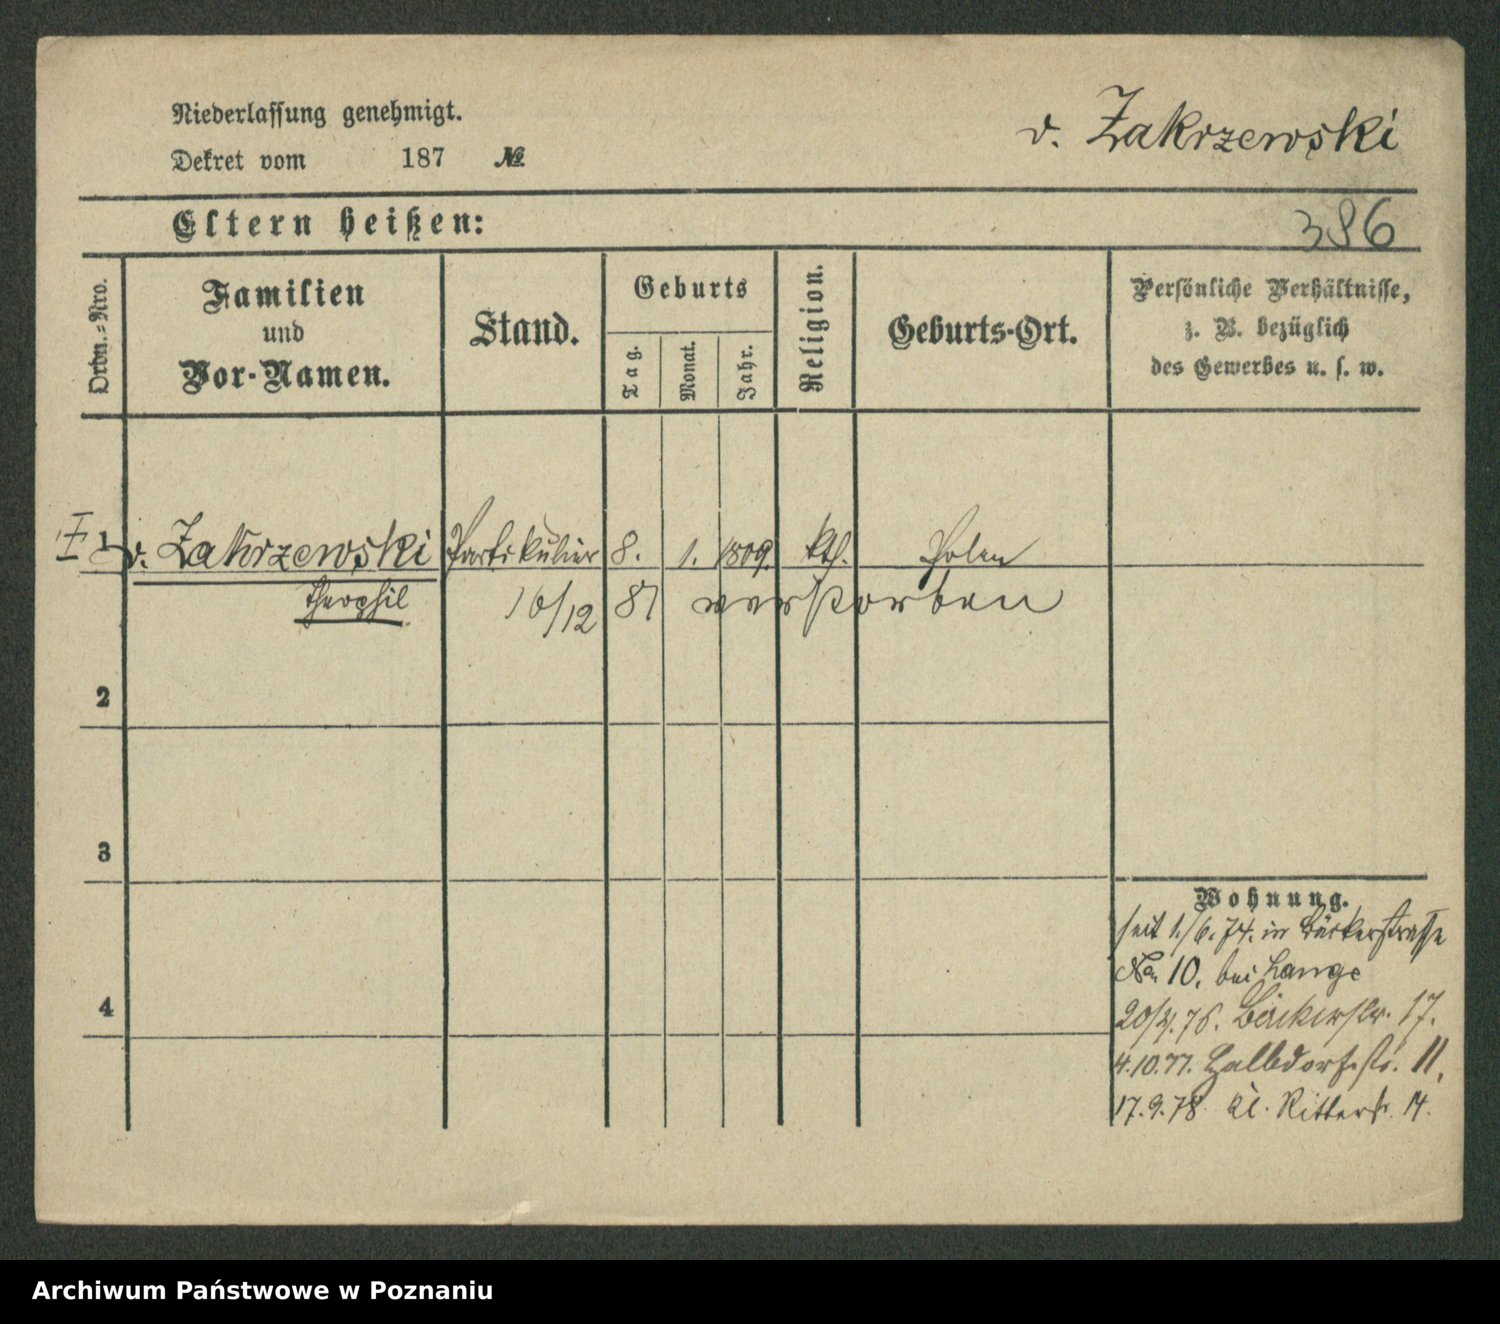 Niederlassung genehmigt.
Dekret vom 187 №
v. Zakrzewski
Eltern heißen:
386
Ordn.=Nro.
Familien
und
Vor-Namen.
Stand.
Geburts
Tag.
Monat.
Jahr.
Religion.
Geburts-Ort.
Persönliche Verhältnisse,
z. B. bezüglich
des Gewerbes u. s. w.
I 1 v. Zakrzewski Partikulier 8. 1. 1809. kth. Polen
Theophil 16/12 81 verstorben
2
3
4
Wohnung.
seit 1./6. 74. in Bäckerstrasse
No 10. bei Lange
20/4. 76. Bäckerstr. 17.
4.10.77. Halbdorfstr. 11.
17.9.78 Kl. Ritterstr. 14.